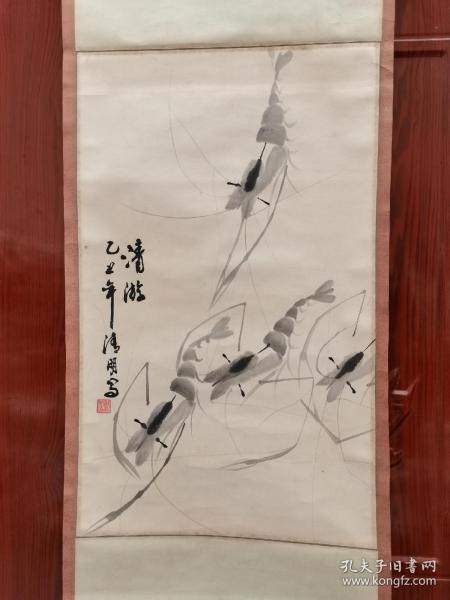 清游
乙丑年清明写
孔夫子旧书网
www.kongfz.com